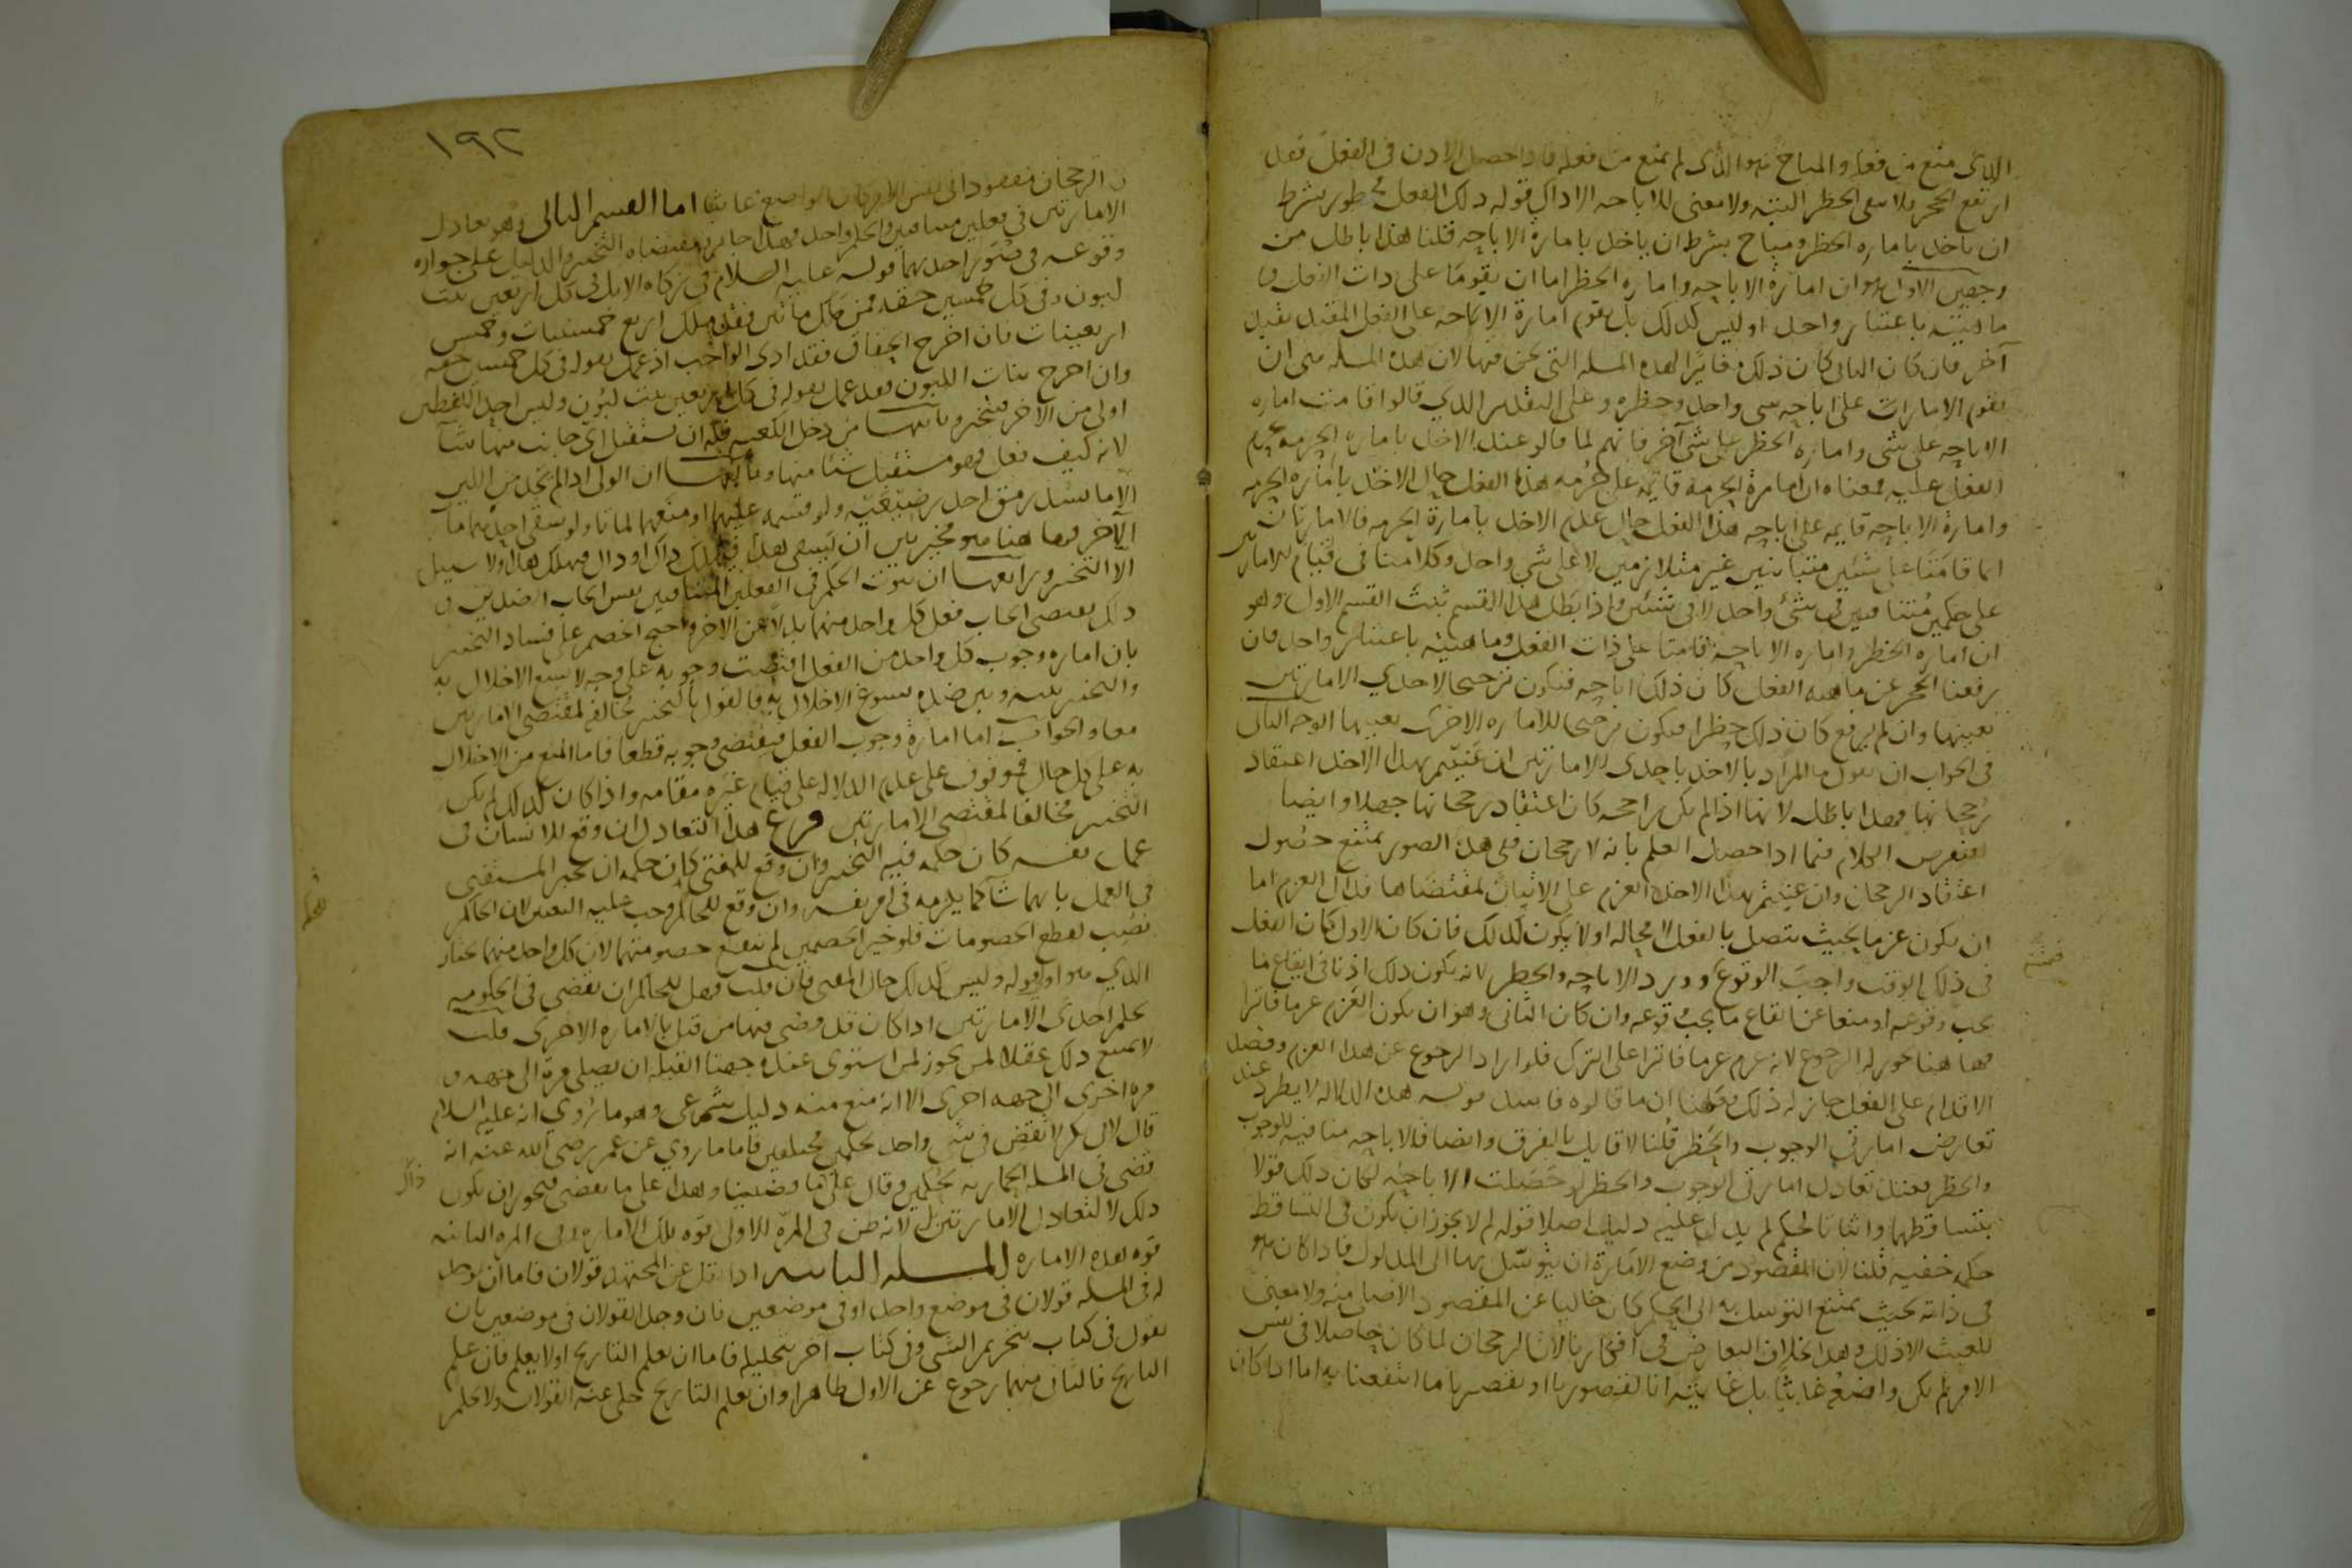 الذى منع من فعله والمباح هو الذى لم يمنع من فعله فاذا حصل الاذن فى الفعل فقد
ارتفع الحجر فلا يبقى الحظر البتة ولا معنى للاباحه الا ذاك قوله ذلك الفعل محظور بشرط
ان ياخذ باماره الحظر ومباح بشرط ان ياخذ بامارة الاباحه قلنا هذا باطل من
وجهين الاول هو ان امارة الاباحه واماره الحظر اما ان يقوما على ذات الفعل و
ماهيته باعتبار واحد او ليس كذلك بل يقوم امارة الاباحه على الفعل المقيد بقيد
آخر فان كان الثانى كان ذلك مغايرا لهذه المسله التى نحن فيها لان هذه المسله هى ان
يقوم الامارات على اباحه شى واحد وحظره وعلى التقدير الذي قالوا قامت اماره
الاباحه على شى واماره الحظر على شى آخر فانهم لما قالو عند الاخذ باماره الحرمه يحرم
الفعل عليه فمعناه ان امارة الحرمه قايمه على حرمه هذا الفعل حال الاخذ باماره الحرمه
وامارة الاباحه قايمه على اباحه هذا الفعل حال عدم الاخذ بامارة الحرمه فالامارتان
انما قامتا على شيئين متباينين غير متلازمين لا على شي واحد وكلامنا فى قيام الامارتين
على حكمين متنافيين فى شئ واحد لا فى شيئين واذا بطل هذا القسم ثبت القسم الاول وهو
ان اماره الحظر واماره الاباحه قامتا على ذات الفعل وماهيته باعتبار واحد فان
رفعنا الحجر عن ماهيه الفعل كان ذلك اباحه فيكون ترجيحا لاحدي الامارتين
بعينها وان لم يرفع كان ذلك حظرا فيكون ترجيحا للاماره الاخرى بعينها الوجه الثانى
فى الجواب ان نقول ما المراد بالاخذ باحدى الامارتين ان عنيتم بهذا الاخذ اعتقاد
رجحانها فهذا باطل لانها اذا لم يكن راجحه كان اعتقاد رجحانها جهلا وايضا
فنفرض الكلام فيما اذا حصل العلم بانه لا رجحان ففى هذه الصور يمتنع حصول
اعتقاد الرجحان وان عنيتم بهذا الاخذ العزم على الاتيان بمقتضاها فذلك العزم اما
ان يكون عزما بحيث يتصل بالفعل لا محاله اولا يكون كذلك فان كان الاول كان الفعل
فى ذلك الوقت واجب الوقوع ورود الاباحه والحظر لانه يكون ذلك اذنا فى ايقاع ما
يجب وقوعه او منعا عن ايقاع ما يجب وقوعه وان كان الثانى وهو ان يكون العزم عزما فاترا
فهاهنا يجوز له الرجوع لانه عزم عزما فاترا على الترك فلو اراد الرجوع عن هذا العزم وقصد
الاقدام على الفعل جاز له ذلك فعلمنا ان ما قالوه فاسد قوله هذه الدلاله لا يطرد عند
تعارض امارتى الوجوب والحظر قلنا لا قايل بالفرق وايضا فالاباحه منافيه للوجوب
والحظر فعند تعادل امارتى الوجوب والحظر لو حصلت الاباحه لكان ذلك قولا
بتساقطهما واثباتا لحكم لم يدل عليه دليل اصلا قوله لم لا يجوز ان يكون فى التساقط
حكمه خفيه قلنا لان المقصود من وضع الامارة ان يتوسل بها الى المدلول فاذا كان هو
فى ذاته بحيث يمتنع التوسل به الى الحكم كان خاليا عن المقصود الاصلى منه ولا معنى
للعبث الا ذلك وهذا بخلاف التعارض فى افكارنا لان الرجحان لما كان حاصلا فى نفس
الامر لم يكن واضعه عابثا بل غايته انا لقصورنا او تقصيرنا ما انتفعنا به اما اذا كان
١٩٢
الرجحان مفقودا فى نفس الامر كان الواضع عابثا اما القسم الثانى وهو تعادل
الامارتين فى فعلين متنافيين والحكم واحد فهذا جايز ومقتضاه التخيير والدليل على جوازه
وقوعه فى صور احدها قوله عليه السلام فى زكاه الابل فى كل اربعين بنت
لبون وفى كل خمسين حقه فمن ملك مائتين فقد ملك اربع خمسينات وخمس
اربعينات فان اخرج الحقاق فقد ادى الواجب اذ عمل بقوله فى كل خمسين حقه
وان اخرج بنات اللبون فقد عمل بقوله فى كل اربعين بنت لبون وليس احد اللفظين
اولى من الآخر فيتخير وثانيها من دخل الكعبه فله ان يستقبل اى جانب منها شآ
لانه كيف فعل فهو مستقبل شئا منها وثالثها ان الولى اذا لم يجد من اللبن
الا ما يسد رمق احد رضيعيه ولو قسمه عليهما او منعهما لماتا ولو سقى احدهما مات
الآخر فهاهنا هو مخير بين ان يسقى هذا فيهلك ذاك او ذاك فيهلك هذا ولا سبيل
الا التخيير ورابعها ان ثبوت الحكم فى الفعلين المتنافيين نفس ايجاب الضدين و
ذلك يقتضى ايجاب فعل كل واحد منهما بدلا عن الآخر واحتج الخصم على فساد التخيير
بان اماره وجوب كل واحد من الفعل اقتضت وجوبه على وجه لا يسع الاخلال به
والتخيير بينه وبين ضده يسوغ الاخلال به فالقول بالتخيير مخالف لمقتضى الامارتين
معا والجواب اما امارة وجوب الفعل فيقتضى وجوبه قطعا فاما المنع من الاخلال
به على كل حال فموقوف على عدم الدلاله على قيام غيره مقامه واذا كان كذلك لم يكن
التخيير مخالفا لمقتضى الامارتين فرع هذا التعادل ان وقع للانسان فى
عمل نفسه كان حكمه فيه التخيير وان وقع للمفتى كان حكمه ان يخير المستفتى
فى العمل بايهما شآ كما يلزمه فى امر نفسه وان وقع للحاكم وجب عليه التعيين لان الحاكم
نصب لقطع الخصومات فلو خير الخصمين لم تنقطع خصومتهما لان كل واحد منهما يختار
الذي هو اوفق له وليس كذلك حال المفتى فان قلت فهل للحاكم ان يقضى فى الحكومه
بحكم احدى الامارتين اذا كان قد قضى فيها من قبل بالاماره الاخرى قلت
لا يمتنع ذلك عقلا كمن يجوز لمن استوى عنده جهتا القبله ان يصلى مرة الى جهه و
مره اخرى الى جهه اخرى الا انه منع منه دليل شرعى وهو ما روي انه عليه السلام
قال لابى بكر لا تقض فى شى واحد بحكمين مختلفين فاما ما روي عن عمر رضى الله عنه انه
قضى فى المسله الحماريه بحكمين وقال ذاك على ما قضينا وهذا على ما نقضى فيجوز ان يكون
ذلك لا لتعادل الامارتين بل لانه ظن فى المره الاولى قوه تلك الاماره وفى المره الثانيه
قوه هذه الاماره المسله الثانيه اذا نقل عن المجتهد قولان فاما ان يوجد
له فى المسله قولان فى موضع واحد او فى موضعين فان وجد القولان فى موضعين بان
يقول فى كتاب بتحريم الشى وفى كتاب آخر بتحليله فاما ان يعلم التاريخ او لا يعلم فان علم
التاريخ فالثانى منهما رجوع عن الاول ظاهرا وان لم يعلم التاريخ حكى عنه القولان ولا يحكم